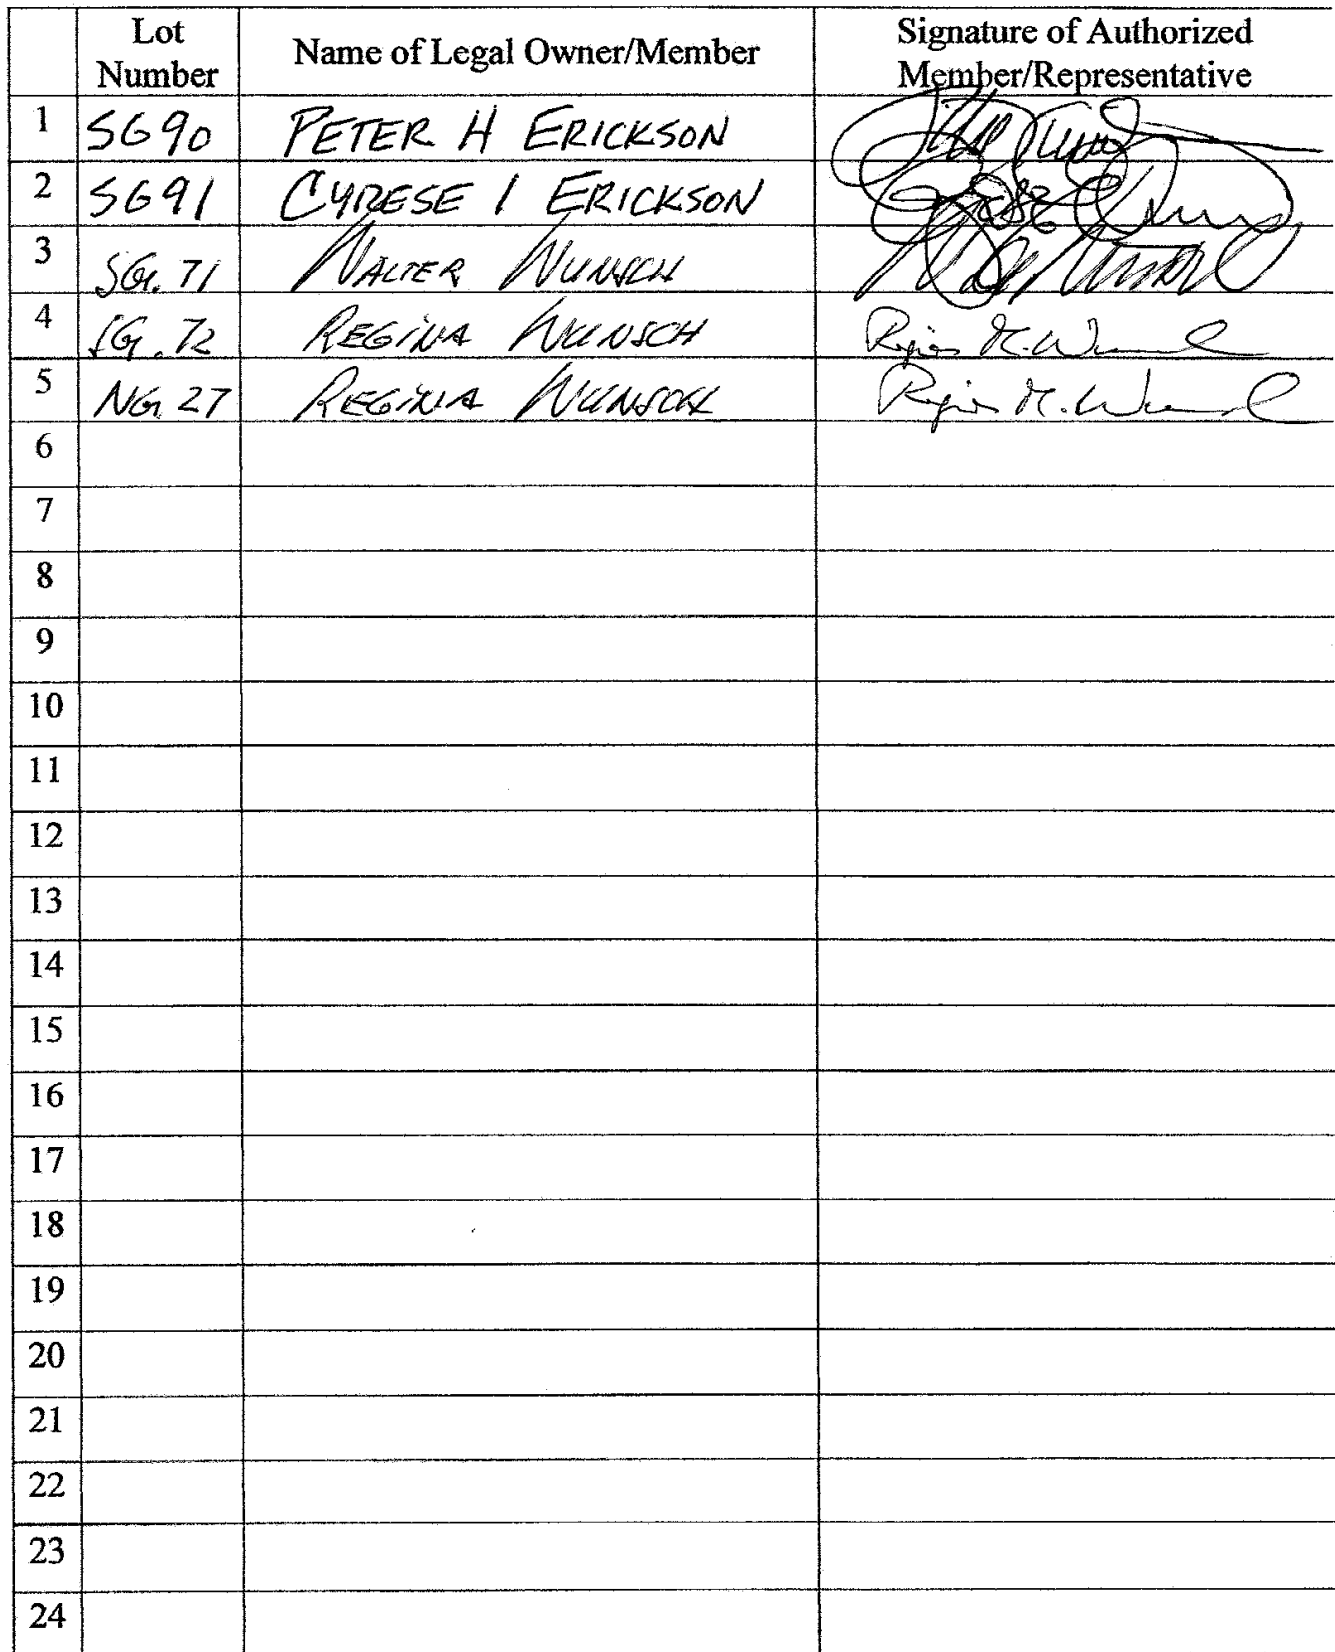 Lot Number Name of Legal Owner/Member Signature of Authorized Member/Representative
1 SG90 PETER H ERICKSON
2 SG91 CYRESE I ERICKSON
3 SG. 71 WALTER WUNSCH
4 SG. 72 REGINA WUNSCH Regina M. Wunsch
5 NG. 27 REGINA WUNSCH Regina M. Wunsch
6
7
8
9
10
11
12
13
14
15
16
17
18
19
20
21
22
23
24